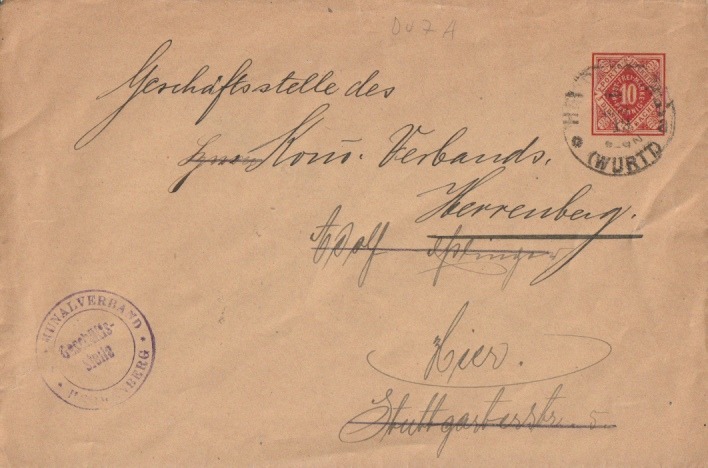 DU 7 A
Geschäftsstelle des
Kom. Verbands.
Herrenberg.
Adolf
Hier.
Stuttgarterstr. 5.
10
(WÜRTT)
MUNALVERBAND
Geschäfts-
stelle